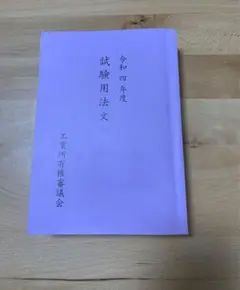 令和四年度
試験用法文
工業所有権審議会